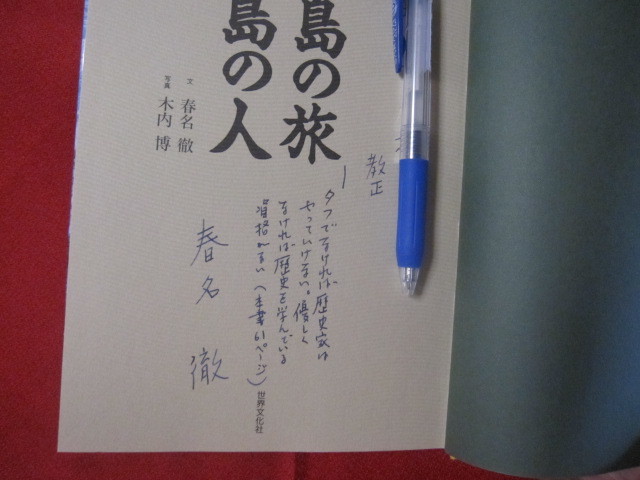 島の旅
島の人
文 春名 徹
写真 木内 博
教正
タフでなければ歴史家は
やっていけない。優しく
なければ歴史を学んでいる
資格がない(本書61ページ)
春名 徹
世界文化社